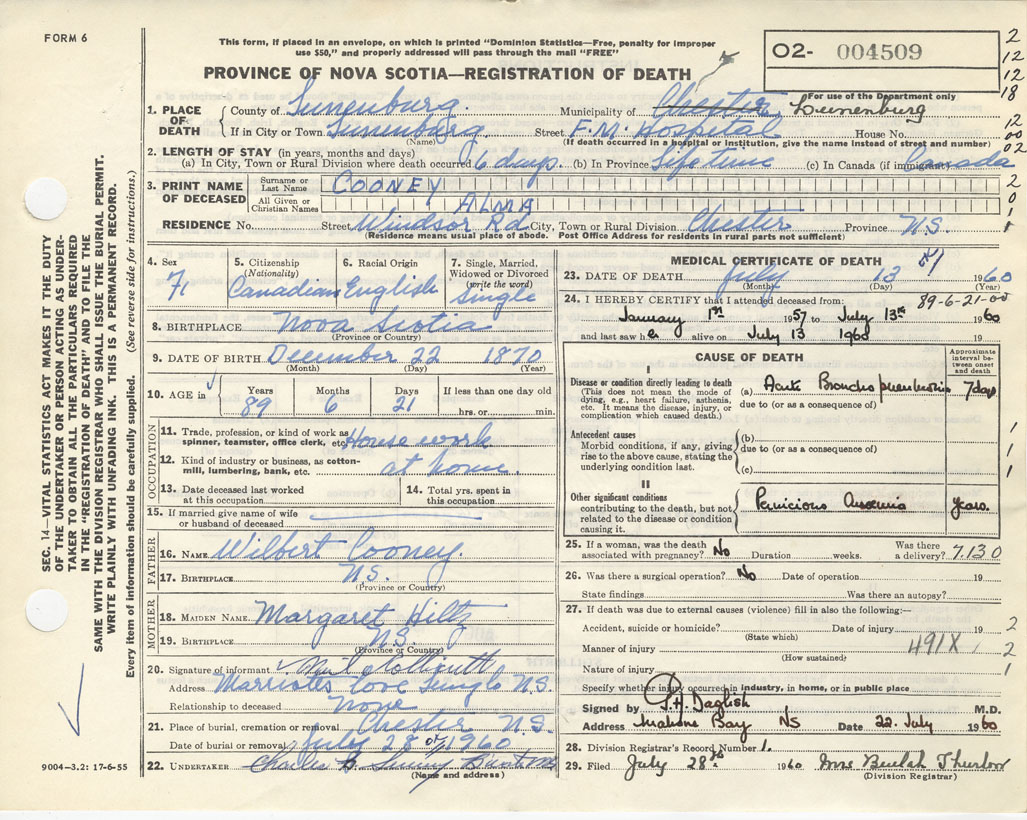 FORM 6
This form, if placed in an envelope, on which is printed "Dominion Statistics—Free, penalty for improper
use $50," and properly addressed will pass through the mail "FREE"
O2- 004509
PROVINCE OF NOVA SCOTIA—REGISTRATION OF DEATH
For use of the Department only
2
12
12
18
12
00
02
2
0
1
1. PLACE OF DEATH
County of Lunenburg.
Municipality of Chester Lunenburg
If in City or Town Lunenburg.
(Name)
Street F.M. Hospital House No.
(If death occurred in a hospital or institution, give the name instead of street and number)
2. LENGTH OF STAY (in years, months and days)
(a) In City, Town or Rural Division where death occurred 6 days. (b) In Province Life time (c) In Canada (if immigrant) Canada
3. PRINT NAME OF DECEASED
Surname or Last Name COONEY
All Given or Christian Names ALMA
RESIDENCE No. Street Windsor Rd. City, Town or Rural Division Chester Province N.S.
(Residence means usual place of abode. Post Office Address for residents in rural parts not sufficient)
4. Sex
F
5. Citizenship
(Nationality)
Canadian
6. Racial Origin
English
7. Single, Married, Widowed or Divorced
(write the word)
Single
8. BIRTHPLACE Nova Scotia
(Province or Country)
9. DATE OF BIRTH December 22 1870
(Month) (Day) (Year)
10. AGE in
Years Months Days If less than one day old
89 6 21 hrs. or min.
OCCUPATION
11. Trade, profession, or kind of work as spinner, teamster, office clerk, etc. House work
12. Kind of industry or business, as cotton-mill, lumbering, bank, etc. at home.
13. Date deceased last worked at this occupation
14. Total yrs. spent in this occupation
15. If married give name of wife or husband of deceased
FATHER
16. NAME Wilbert Cooney.
17. BIRTHPLACE N.S.
(Province or Country)
MOTHER
18. MAIDEN NAME Margaret Hiltz
19. BIRTHPLACE N.S.
(Province or Country)
20. Signature of informant
Address Marriotts Cove N.S.
Relationship to deceased None
21. Place of burial, cremation or removal Chester N.S.
Date of burial or removal July 28 1960
22. UNDERTAKER Charles
(Name and address)
MEDICAL CERTIFICATE OF DEATH
23. DATE OF DEATH July 13 1960
(Month) (Day) (Year)
89-6-21-00
24. I HEREBY CERTIFY that I attended deceased from:
January 1st 1957 to July 13th 1960
and last saw h er alive on July 13 1960 19
CAUSE OF DEATH
Approximate interval between onset and death
I
Disease or condition directly leading to death
(This does not mean the mode of dying, e.g., heart failure, asthenia, etc. It means the disease, injury, or complication which caused death.)
(a) Acute Bronchopneumonia 7 days
due to (or as a consequence of)
Antecedent causes
Morbid conditions, if any, giving rise to the above cause, stating the underlying condition last.
(b)
due to (or as a consequence of)
(c)
1
1
1
II
Other significant conditions
contributing to the death, but not related to the disease or condition causing it.
Pernicious Anaemia years.
25. If a woman, was the death associated with pregnancy? No Duration weeks. Was there a delivery? 7.130
26. Was there a surgical operation? No Date of operation 19
State findings Was there an autopsy?
27. If death was due to external causes (violence) fill in also the following:—
Accident, suicide or homicide? Date of injury 19
(State which)
Manner of injury 491X
(How sustained)
Nature of injury
2
2
1
Specify whether injury occurred in industry, in home, or in public place
Signed by P.H. Daglish M.D.
Address Mahone Bay NS Date 22. July 1960
28. Division Registrar's Record Number 1.
29. Filed July 28th 1960 Mrs Beulah Thurlow
(Division Registrar)
SEC. 14—VITAL STATISTICS ACT MAKES IT THE DUTY
OF THE UNDERTAKER OR PERSON ACTING AS UNDER-
TAKER TO OBTAIN ALL THE PARTICULARS REQUIRED
IN THE "REGISTRATION OF DEATH" AND TO FILE THE
SAME WITH THE DIVISION REGISTRAR WHO SHALL ISSUE THE BURIAL PERMIT.
WRITE PLAINLY WITH UNFADING INK. THIS IS A PERMANENT RECORD.
Every item of information should be carefully supplied. (See reverse side for instructions.)
9004-3.2: 17-6-55